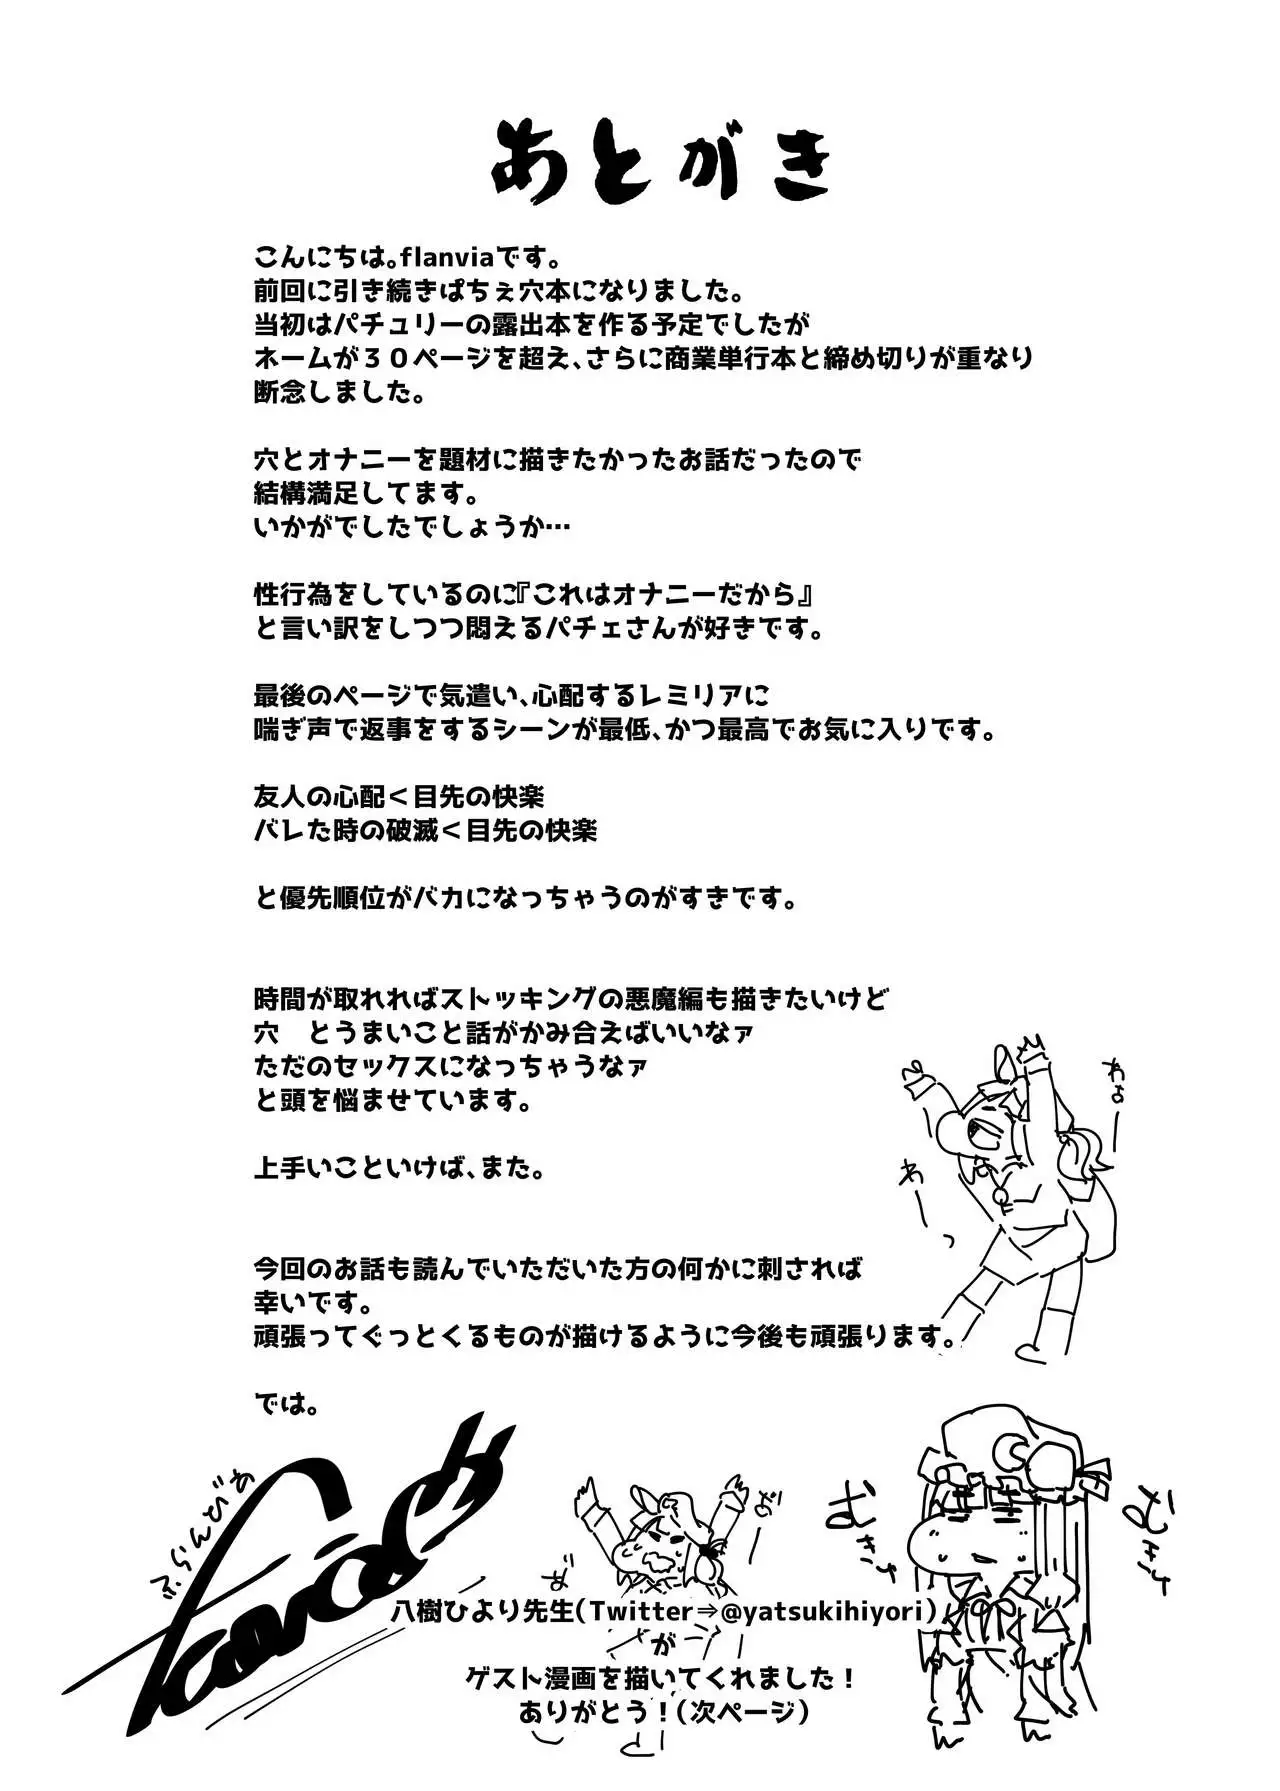 あとがき
こんにちは。flanviaです。
前回に引き続きぱちぇ穴本になりました。
当初はパチュリーの露出本を作る予定でしたが
ネームが３０ページを超え、さらに商業単行本と締め切りが重なり
断念しました。
穴とオナニーを題材に描きたかったお話だったので
結構満足してます。
いかがでしたでしょうか…
性行為をしているのに『これはオナニーだから』
と言い訳をしつつ悶えるパチェさんが好きです。
最後のページで気遣い、心配するレミリアに
喘ぎ声で返事をするシーンが最低、かつ最高でお気に入りです。
友人の心配＜目先の快楽
バレた時の破滅＜目先の快楽
と優先順位がバカになっちゃうのがすきです。
時間が取れればストッキングの悪魔編も描きたいけど
穴　とうまいこと話がかみ合えばいいなァ
ただのセックスになっちゃうなァ
と頭を悩ませています。
上手いこといけば、また。
わぁー
わーっ
今回のお話も読んでいただいた方の何かに刺されば
幸いです。
頑張ってぐっとくるものが描けるように今後も頑張ります。
では。
ふらんどびあ
むきゅ
むきゅ
八樹ひより先生（Twitter⇒@yatsukihiyori）
が
ゲスト漫画を描いてくれました！
ありがとう！（次ページ）